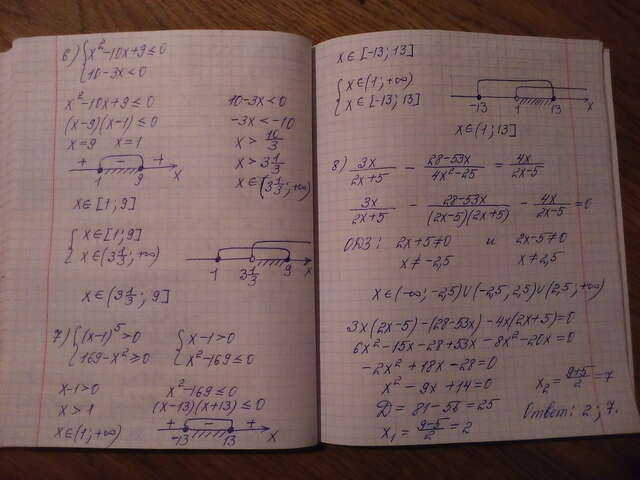 6) { x² - 10x + 9 ≤ 0
{ 10 - 3x < 0
x² - 10x + 9 ≤ 0
(x-9)(x-1) ≤ 0
x = 9 x = 1
10 - 3x < 0
-3x < -10
x > 10/3
x > 3 1/3
x ∈ (3 1/3; +∞)
+ - +
1 9 x
x ∈ [1; 9]
{ x ∈ [1; 9]
{ x ∈ (3 1/3; +∞)
1 3 1/3 9 x
x ∈ (3 1/3; 9]
7) { (x-1)⁵ > 0 { x - 1 > 0
{ 169 - x² ≥ 0 { x² - 169 ≤ 0
x - 1 > 0
x > 1
x ∈ (1; +∞)
x² - 169 ≤ 0
(x-13)(x+13) ≤ 0
+ - +
-13 13 x
x ∈ [-13; 13]
{ x ∈ (1; +∞)
{ x ∈ [-13; 13]
-13 1 13 x
x ∈ (1; 13]
8) 3x/(2x+5) - (28-53x)/(4x²-25) = 4x/(2x-5)
3x/(2x+5) - (28-53x)/((2x-5)(2x+5)) - 4x/(2x-5) = 0
ОДЗ: 2x+5 ≠ 0 и 2x-5 ≠ 0
x ≠ -2,5 x ≠ 2,5
x ∈ (-∞; -2,5) ∪ (-2,5; 2,5) ∪ (2,5; +∞)
3x(2x-5) - (28-53x) - 4x(2x+5) = 0
6x² - 15x - 28 + 53x - 8x² - 20x = 0
-2x² + 18x - 28 = 0
x² - 9x + 14 = 0
Д = 81 - 56 = 25
x₁ = (9-5)/2 = 2
x₂ = (9+5)/2 = 7
Ответ: 2; 7.